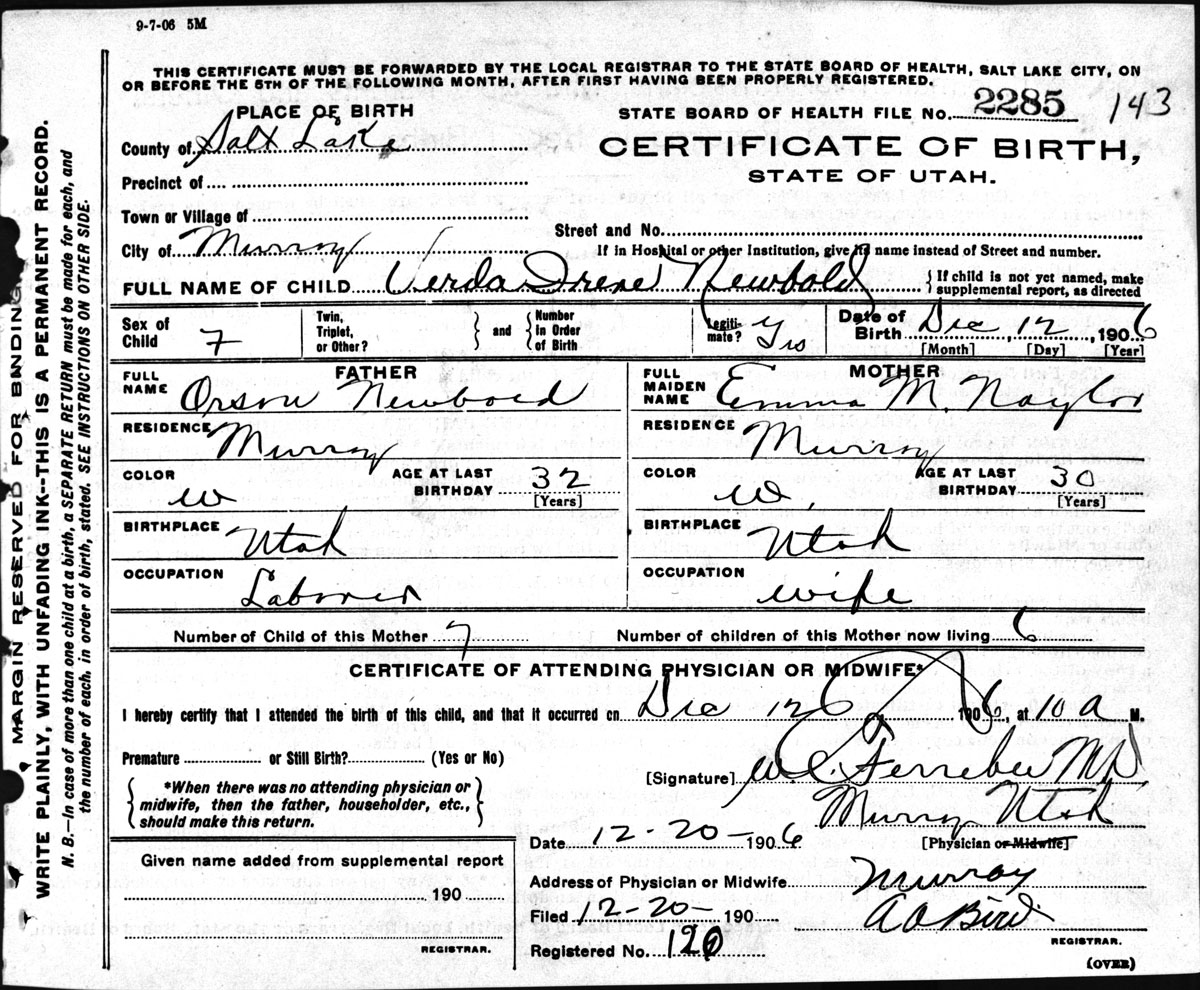 9-7-06 5M
THIS CERTIFICATE MUST BE FORWARDED BY THE LOCAL REGISTRAR TO THE STATE BOARD OF HEALTH, SALT LAKE CITY, ON
OR BEFORE THE 5TH OF THE FOLLOWING MONTH, AFTER FIRST HAVING BEEN PROPERLY REGISTERED.
PLACE OF BIRTH
STATE BOARD OF HEALTH FILE No. 2285 143
County of Salt Lake
CERTIFICATE OF BIRTH,
STATE OF UTAH.
Precinct of
Town or Village of
Street and No.
City of Murray
If in Hospital or other Institution, give its name instead of Street and number.
FULL NAME OF CHILD Verda Irene Newbold
{If child is not yet named, make
supplemental report, as directed
Sex of Child 7
Twin, Triplet, or Other? } and { Number in Order of Birth
Legiti-mate? Yes
Date of Birth Dec 12, 1906
[Month] [Day] [Year]
FATHER
FULL NAME Orson Newbold
RESIDENCE Murray
COLOR W
AGE AT LAST BIRTHDAY 32
[Years]
BIRTHPLACE Utah
OCCUPATION Laborer
MOTHER
FULL MAIDEN NAME Emma M. Naylor
RESIDENCE Murray
COLOR W.
AGE AT LAST BIRTHDAY 30
[Years]
BIRTHPLACE Utah
OCCUPATION wife
Number of Child of this Mother 7
Number of children of this Mother now living 6
CERTIFICATE OF ATTENDING PHYSICIAN OR MIDWIFE*
I hereby certify that I attended the birth of this child, and that it occurred on Dec 12 6 1906, at 10 a M.
Premature or Still Birth? (Yes or No)
{ *When there was no attending physician or
midwife, then the father, householder, etc.,
should make this return. }
[Signature] Ferrebee MD
Murray Utah
[Physician or Midwife]
Date 12-20- 1906
Given name added from supplemental report
190
REGISTRAR.
Address of Physician or Midwife Murray
Filed 12-20- 190
A O Bird
REGISTRAR.
Registered No. 120
(OVER)
MARGIN RESERVED FOR BANDING
WRITE PLAINLY, WITH UNFADING INK--THIS IS A PERMANENT RECORD.
N. B.—In case of more than one child at a birth, a SEPARATE RETURN must be made for each, and
the number of each, in order of birth, stated. SEE INSTRUCTIONS ON OTHER SIDE.